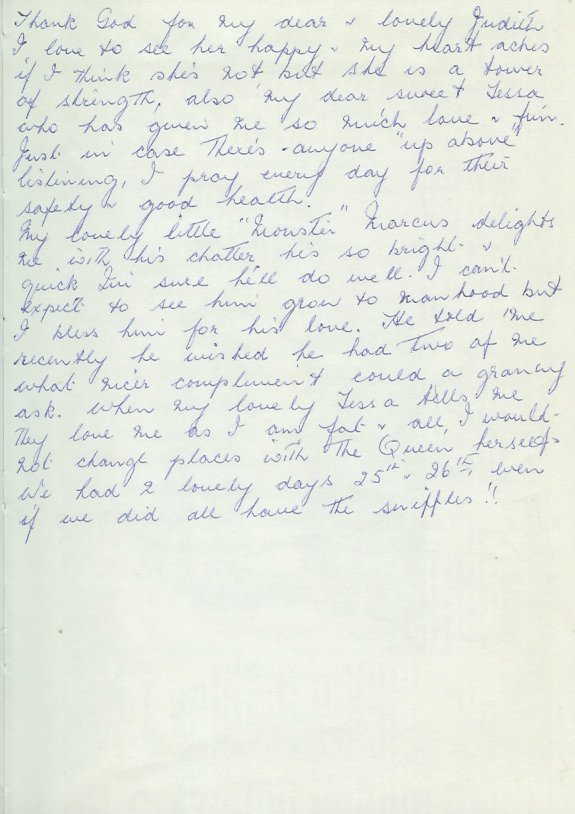 Thank God for my dear & lovely Judith
I love to see her happy & my heart aches
if I think she's not but she is a tower
of strength, also my dear sweet Tessa
who has given me so much love & fun.
Just in case There's anyone "up above"
listining, I pray every day for their
safety & good health.
My lovely little "Monster" Marcus delights
me with his chatter he's so bright &
quick I'm sure he'll do well. I can't
expect to see him grow to manhood but
I bless him for his love. He told me
recently he wished he had Two of me
what nicer compliment could a granny
ask. When my lovely Tessa tells me
They love me as I am fat & all, I would
not change places with The Queen herself
We had 2 lovely days 25th & 26th, even
if we did all have the sniffles!!